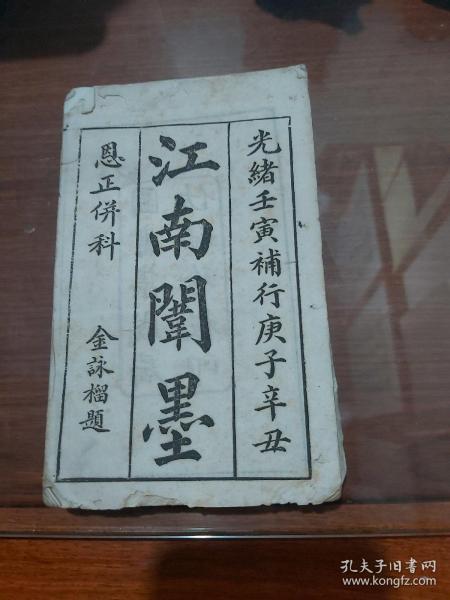 光緒壬寅補行庚子辛丑
江南闈墨
恩正併科
金詠榴題
孔夫子旧书网
www.kongfz.com